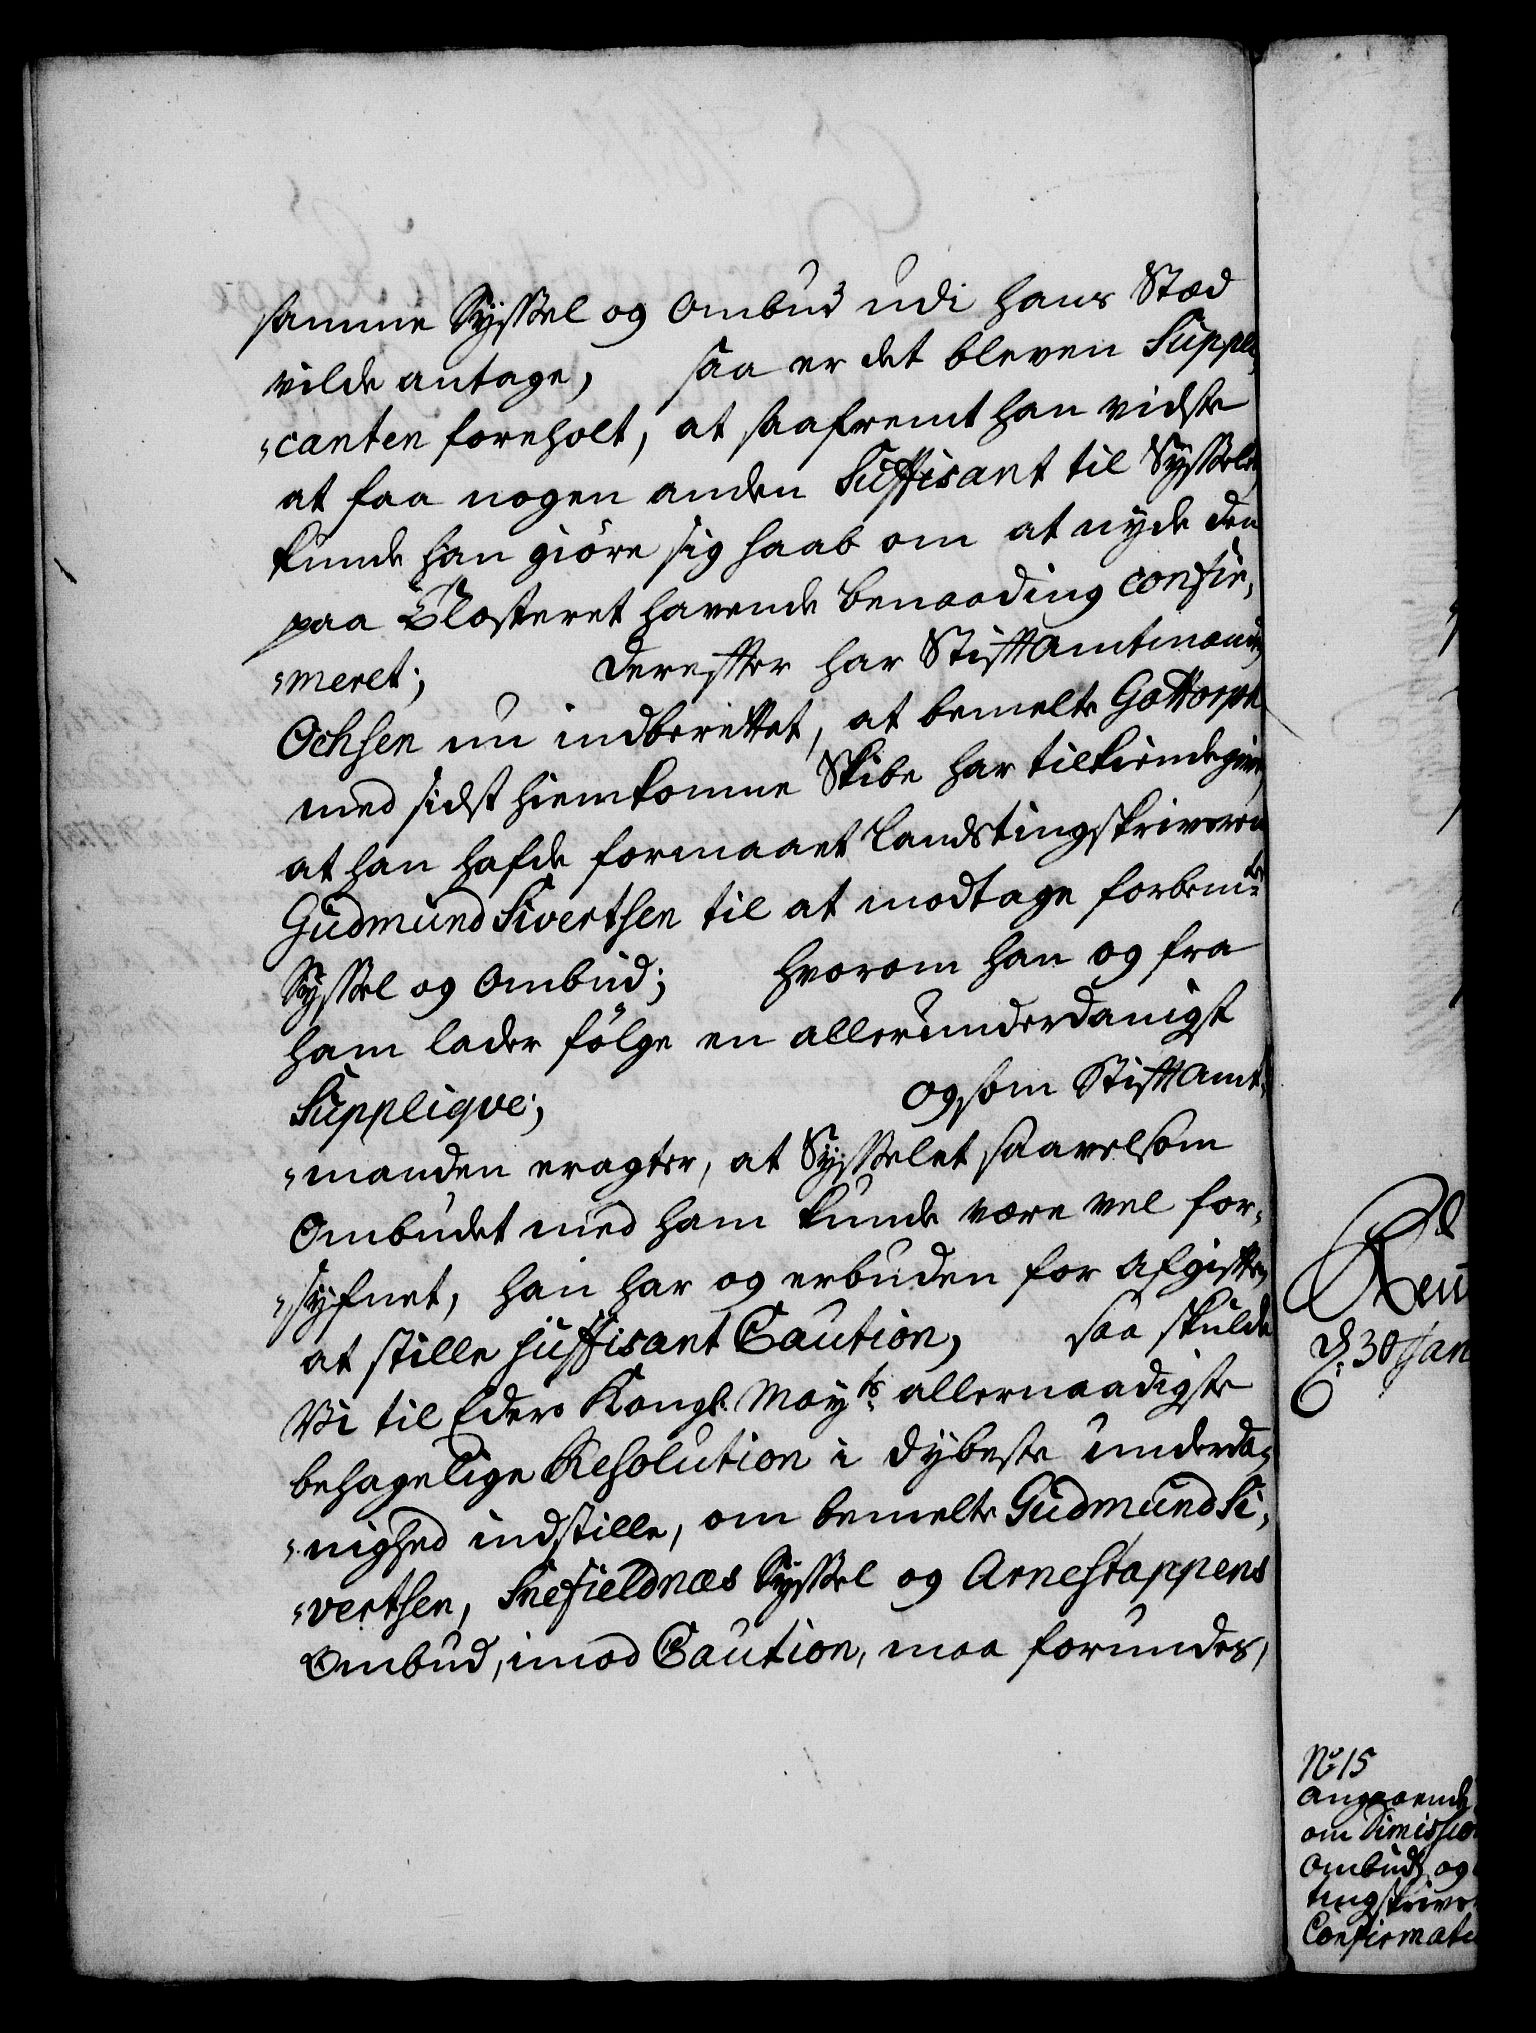 samme Syssel og Ombud udi hans Stæd
vilde antage, saa er det bleven Suppli,
"canten foreholt, at saafremt han vidste
at faa nogen anden Suffisant til Sysselet,
kunde han giöre sig haab om at nyde den
paa Closteret havende benaading confir,
"meret; derefter har Stiftamtmand
Ochsen nu indberettet, at bemelte Gottorph
med sidst hiemkomne Skibe har tilkiendegivet,
at han hafde formaaet Landstingskriveren
Gudmund Sivertsen til at modtage forbemte
Syssel og Ombud; hvorom han og fra
ham lader fölge en allerunderdanigst
Supplique; og som Stiftamt,
"manden eragter, at Sysselet saavelsom
Ombudet med ham kunde være vel for,
"syfnet, han har og erbuden for Afgiften
at stille suffisant Caution, saa skulde
Vi til Eders Kongl. Mayts allernaadigste
behagelige Resolution i dybeste underda,
"nighed indstille, om bemelte Gudmund Si,
"vertsen, Snefieldnæs Syssel og Arnestappens
Ombud, imod Caution, maa forundes,
Ren
D. 30 Jan
No 15
Angaaende
om Dimission
Ombuds og
tingskriver
Confirmati